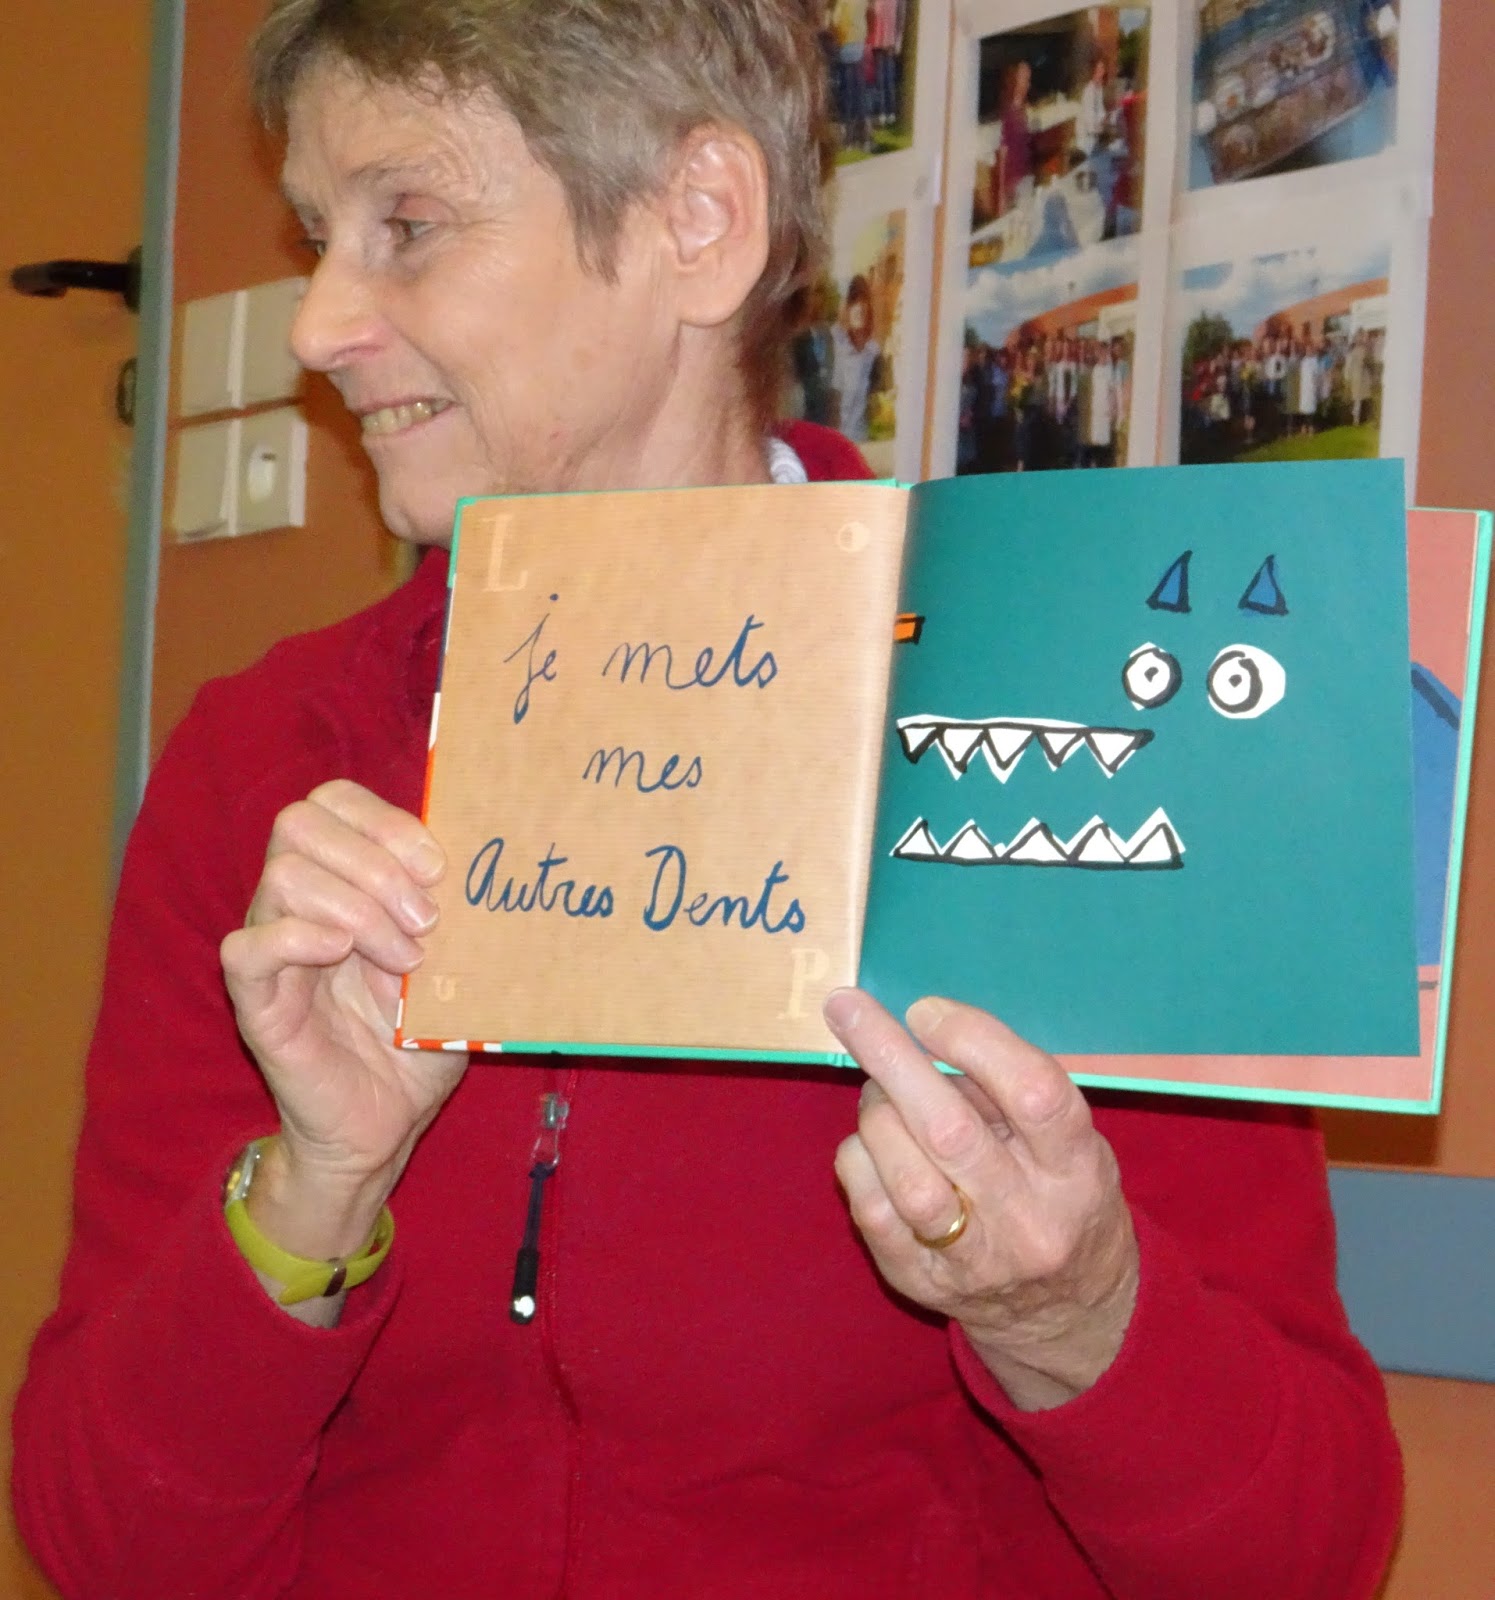 L O
je mets
mes
Autres Dents
u P